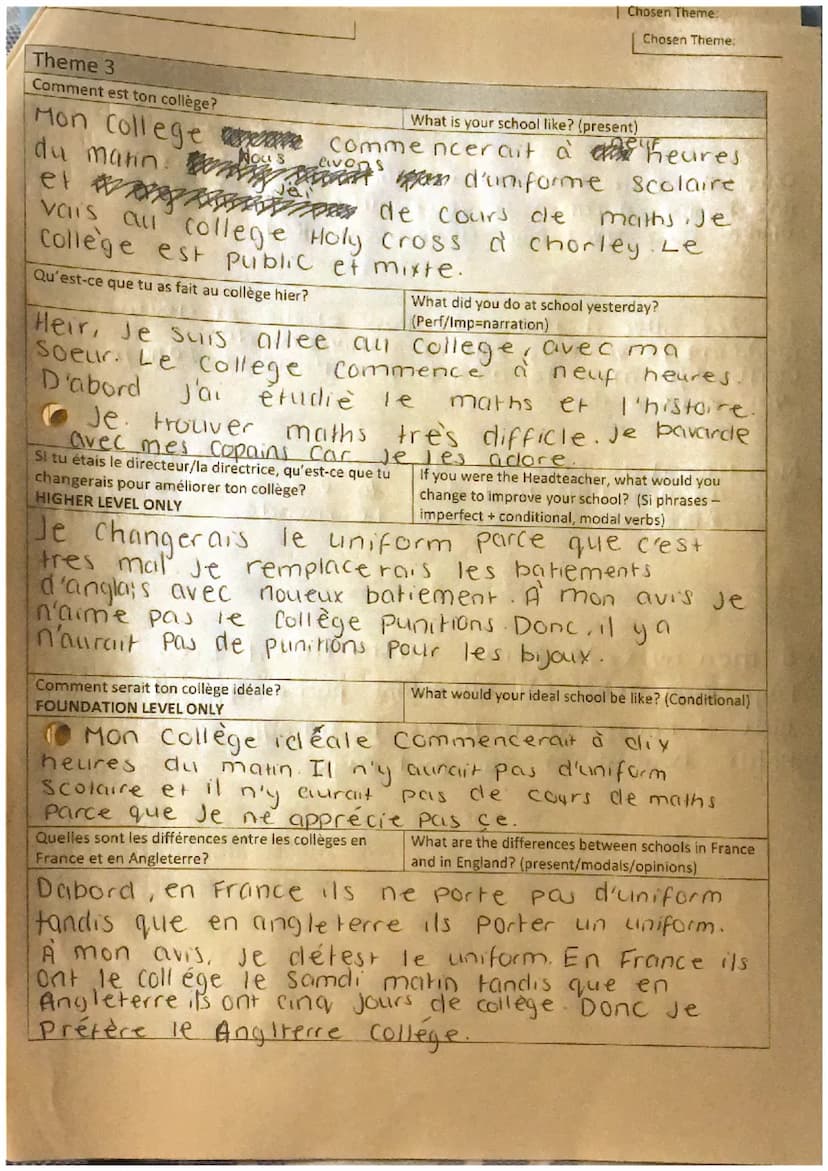 Chosen Theme:
Chosen Theme:
Theme 3
Comment est ton collège?
What is your school like? (present)
Mon College commencerait à neuf heures
du matin. Nous avons d'uniforme scolaire
et j'ai de cours de maths. Je
vais au college Holy Cross à chorley. Le
Collège est public et mixte.
Qu'est-ce que tu as fait au collège hier?
What did you do at school yesterday?
(Perf/Imp=narration)
Heir, Je suis allee au College, avec ma
soeur. Le College commence à neuf heures.
D'abord j'ai étudiè le maths et l'histoire.
Je. trouver maths très difficle. Je bavarde
avec mes copains car je les adore.
Si tu étais le directeur/la directrice, qu'est-ce que tu
changerais pour améliorer ton collège?
HIGHER LEVEL ONLY
If you were the Headteacher, what would you
change to improve your school? (Si phrases –
imperfect + conditional, modal verbs)
Je changerais le uniform parce que c'est
tres mal Je remplacerais les batiements
d'anglais avec noueux batiement. À mon avis Je
n'aime pas le Collège punitions. Donc, il ya
n'aurait pas de punitions pour les bijoux.
Comment serait ton collège idéale?
FOUNDATION LEVEL ONLY
What would your ideal school be like? (Conditional)
Mon Collège idéale commencerait à dix
heures du matin. Il n'y aurait pas d'uniform
scolaire et il n'y aurait pas de cours de maths
parce que Je ne apprécie pas çe.
Quelles sont les différences entre les collèges en
France et en Angleterre?
What are the differences between schools in France
and in England? (present/modals/opinions)
Dabord, en France ils ne porte pas d'uniform
tandis que en angleterre ils porter un uniform.
À mon avis, Je détest le uniform. En France ils
ont le collége le Samdi matin tandis que en
Angleterre ils ont cinq jours de collège. Donc Je
Préfère le Anglterre Collége.